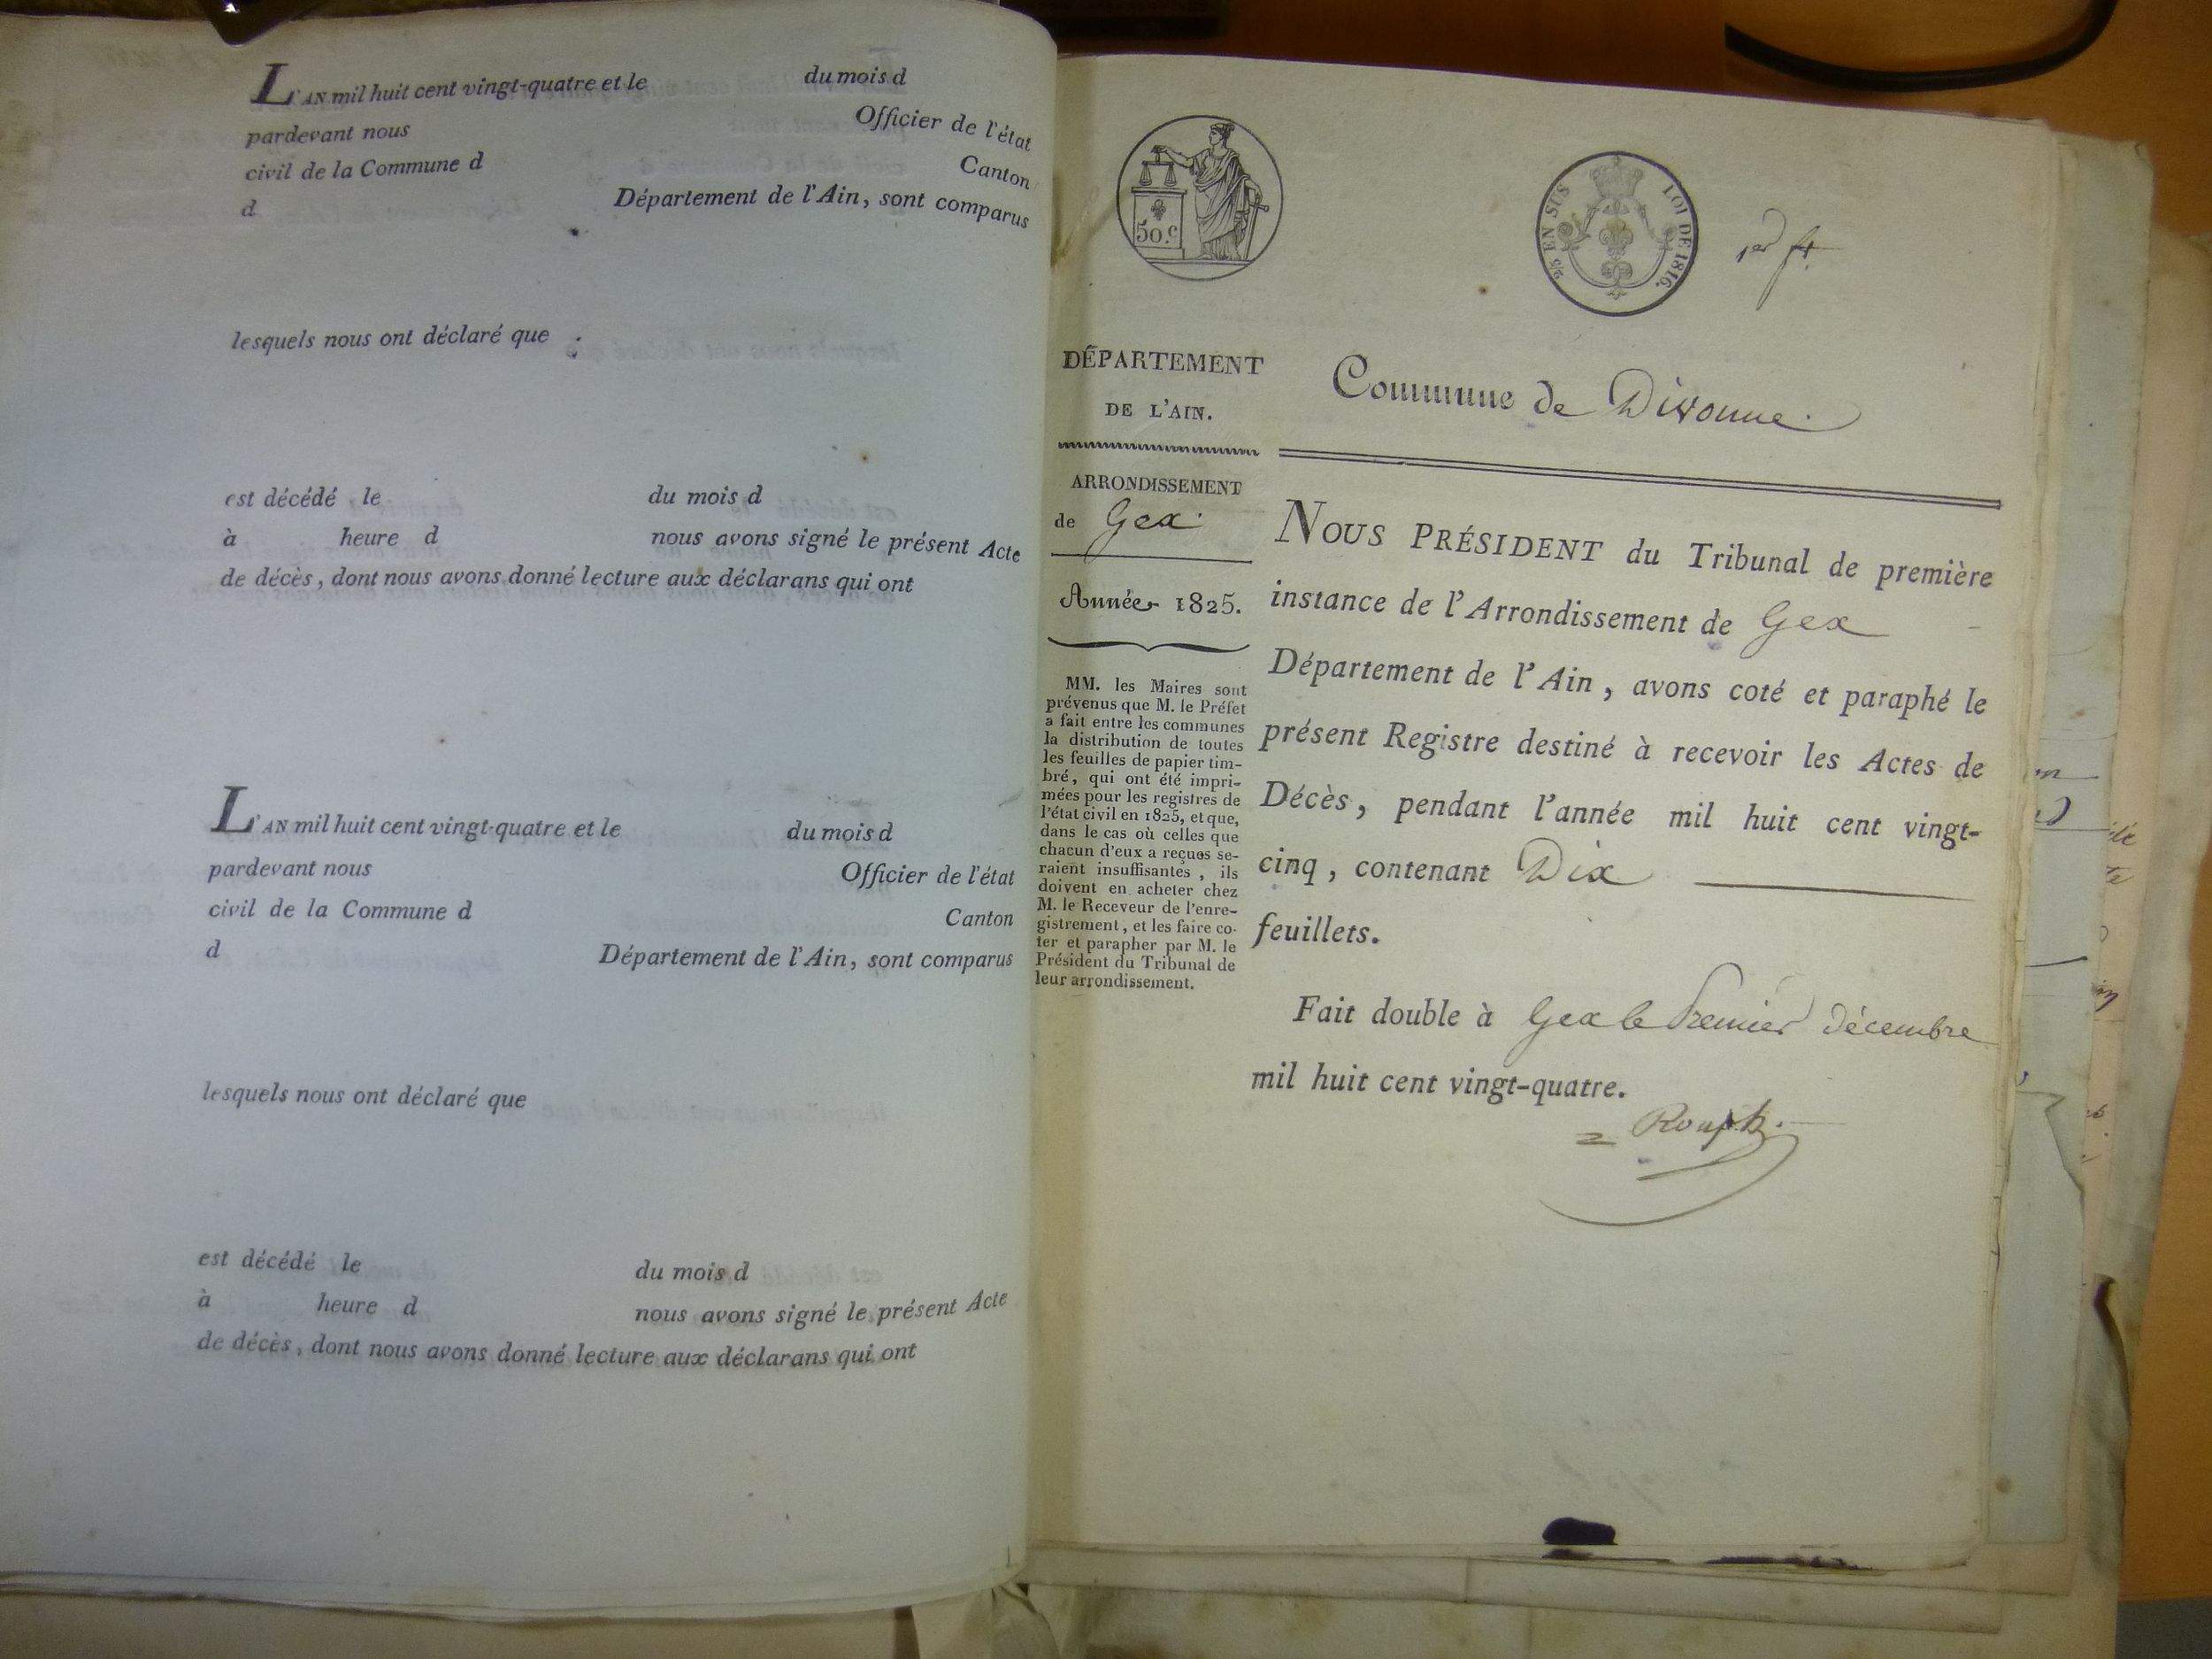 L'AN mil huit cent vingt-quatre et le du mois d
pardevant nous Officier de l'état
civil de la Commune d Canton
d Département de l'Ain, sont comparus
lesquels nous ont déclaré que
est décédé le du mois d
à heure d nous avons signé le présent Acte
de décès, dont nous avons donné lecture aux déclarans qui ont
L'AN mil huit cent vingt-quatre et le du mois d
pardevant nous Officier de l'état
civil de la Commune d Canton
d Département de l'Ain, sont comparus
lesquels nous ont déclaré que
est décédé le du mois d
à heure d nous avons signé le présent Acte
de décès, dont nous avons donné lecture aux déclarans qui ont
50.c
EN SUS LOI DE 1816.
1er ft.
DÉPARTEMENT
DE L'AIN.
ARRONDISSEMENT
de Gex.
Année 1825.
MM. les Maires sont
prévenus que M. le Préfet
a fait entre les communes
la distribution de toutes
les feuilles de papier tim-
bré, qui ont été impri-
mées pour les registres de
l'état civil en 1825, et que,
dans le cas où celles que
chacun d'eux a reçues se-
raient insuffisantes, ils
doivent en acheter chez
M. le Receveur de l'enre-
gistrement, et les faire co-
ter et parapher par M. le
Président du Tribunal de
leur arrondissement.
Commune de Divonne.
NOUS PRÉSIDENT du Tribunal de première
instance de l'Arrondissement de Gex
Département de l'Ain, avons coté et paraphé le
présent Registre destiné à recevoir les Actes de
Décès, pendant l'année mil huit cent vingt-
cinq, contenant Dix
feuillets.
Fait double à Gex le Premier décembre
mil huit cent vingt-quatre.